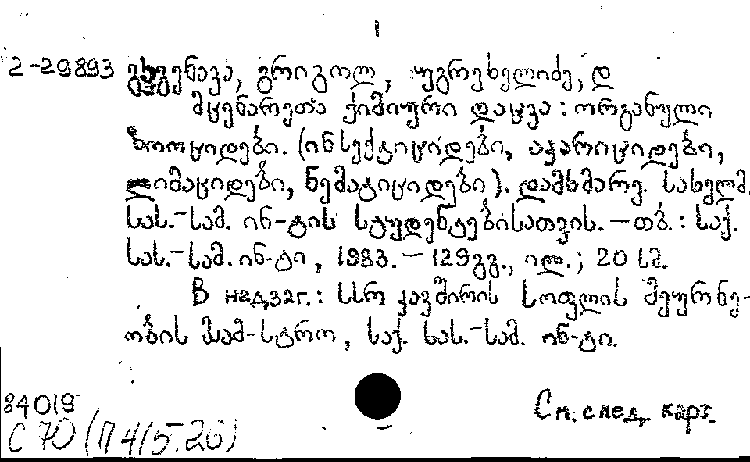 2-29893 გეგენავა, გრიგოლ, უგრეხელიძე, დ
მცენარეთა ქიმიური დაცვა : ორგანული
ზოოციდები. (ინსექტიციდები, აკარიციდები,
ლიმაციდები, ნემატიციდები). დამხმარე. სახელმ.
სას.-სამ. ინ-ტის სტუდენტებისათვის. — თბ. : საქ.
სას.-სამ. ინ-ტი, 1983. — 129 გვ., ილ. ; 20 სმ.
В надзаг.: სსრ კავშირის სოფლის მეურნე-
ობის სამ-სტრო, საქ. სას.-სამ. ინ-ტი.
84019
С 70 (П415.26)
См. след. карт.